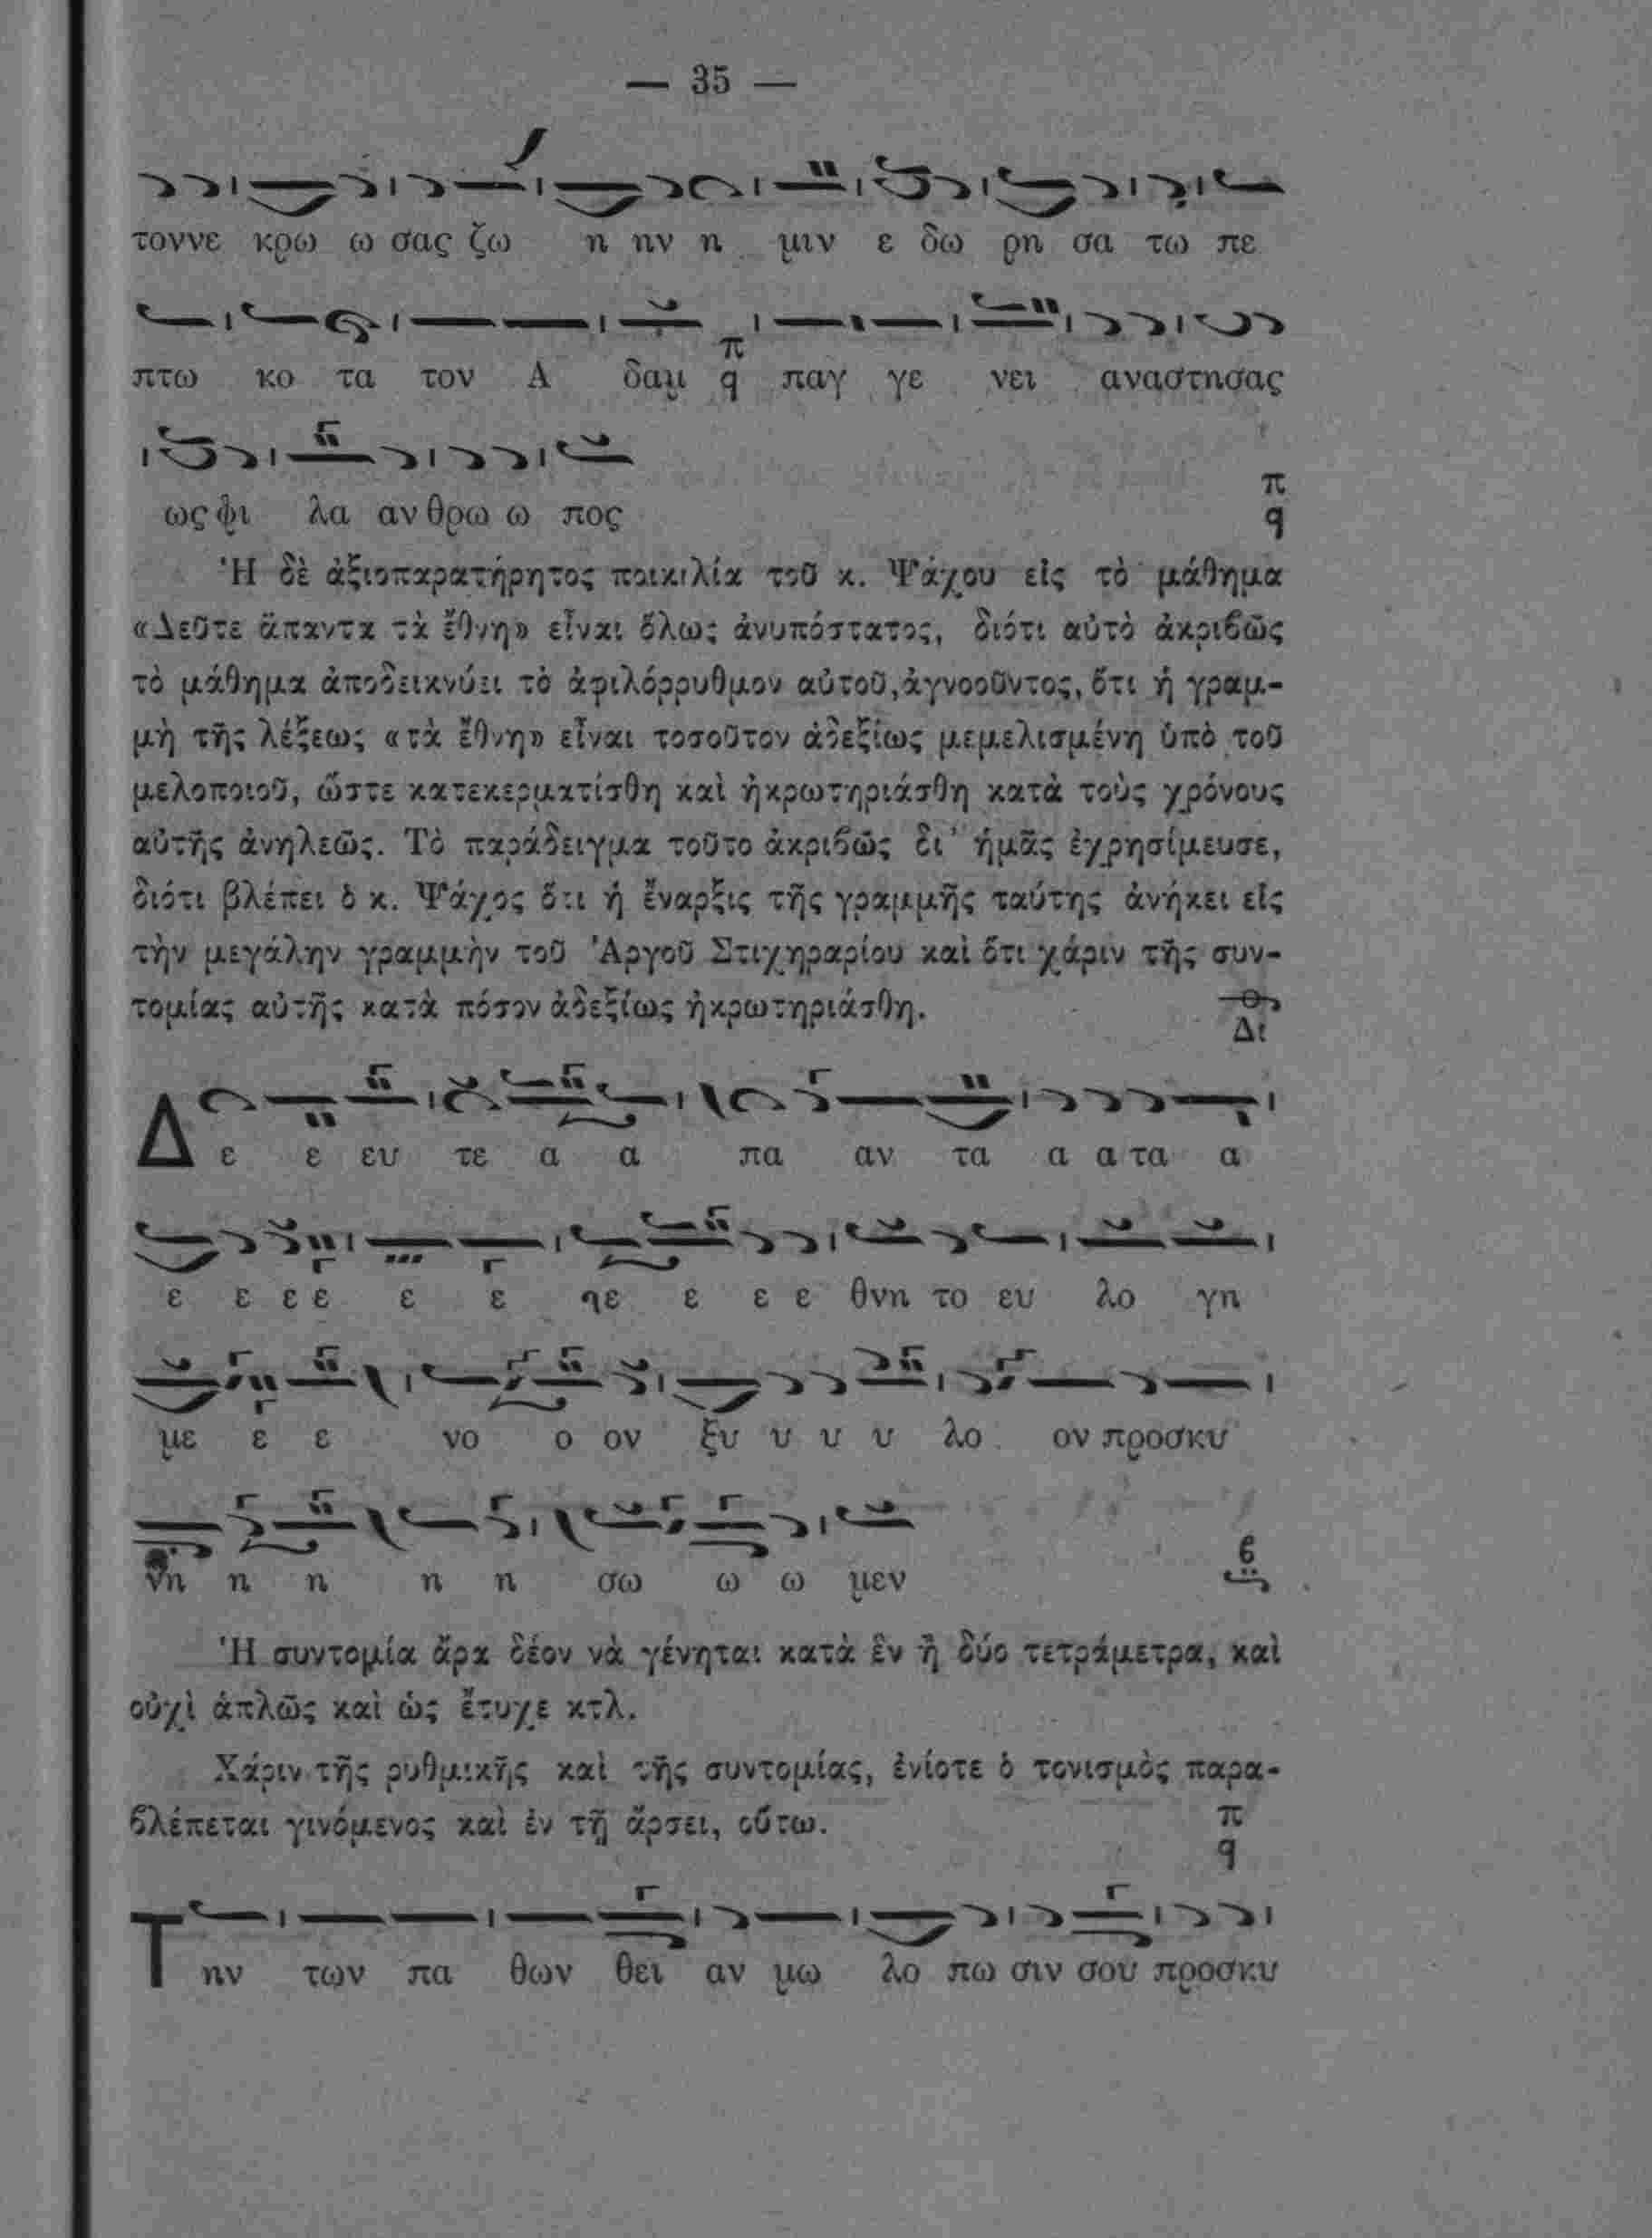 — 35 —
τοννε κρω ω σας ζω η ην η μιν ε δω ρη σα τω πε
πτω κο τα τον Α δαμ π q παγ γε νει αναστησας
ως φι λα αν θρω ω πος π q
Ἡ δὲ ἀξιοπαρατήρητος ποικιλία τοῦ κ. Ψάχου εἰς τὸ μάθημα
«Δεῦτε ἅπαντα τὰ ἔθνη» εἶναι ὅλως ἀνυπόστατος, διότι αὐτὸ ἀκριβῶς
τὸ μάθημα ἀποδεικνύει τὸ ἀφιλόρρυθμον αὐτοῦ, ἀγνοοῦντος, ὅτι ἡ γραμ-
μὴ τῆς λέξεως «τὰ ἔθνη» εἶναι τοσοῦτον ἀδεξίως μεμελισμένη ὑπὸ τοῦ
μελοποιοῦ, ὥστε κατεκερματίσθη καὶ ἠκρωτηριάσθη κατὰ τοὺς χρόνους
αὐτῆς ἀνηλεῶς. Τὸ παράδειγμα τοῦτο ἀκριβῶς δι' ἡμᾶς ἐχρησίμευσε,
διότι βλέπει ὁ κ. Ψάχος ὅτι ἡ ἔναρξις τῆς γραμμῆς ταύτης ἀνήκει εἰς
τὴν μεγάλην γραμμὴν τοῦ Ἀργοῦ Στιχηραρίου καὶ ὅτι χάριν τῆς συν-
τομίας αὐτῆς κατὰ πόσον ἀδεξίως ἠκρωτηριάσθη.
Δι
Δ ε ε ευ τε α α πα αν τα α α τα α
ε ε ε ε ε ε ηε ε ε ε θνη το ευ λο γη
με ε ε νο ο ον ξυ υ υ υ λο ον προσκυ
νη η η η η σω ω ω μεν ϐ
Ἡ συντομία ἄρα δέον νὰ γένηται κατὰ ἓν ἢ δύο τετράμετρα, καὶ
οὐχὶ ἁπλῶς καὶ ὡς ἔτυχε κτλ.
Χάριν τῆς ρυθμικῆς καὶ τῆς συντομίας, ἐνίοτε ὁ τονισμὸς παρα-
βλέπεται γινόμενος καὶ ἐν τῇ ἄρσει, οὕτω. π q
Τ ην των πα θων θει αν μω λο πω σιν σου προσκυ